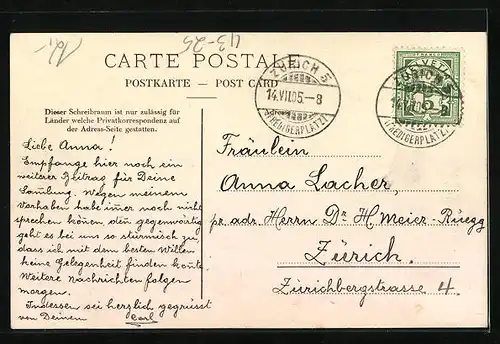 10,-
43-25
CARTE POSTALE
POSTKARTE — POST CARD
Dieser Schreibraum ist nur zulässig für
Länder welche Privatkorrespondenz auf
der Adress-Seite gestatten.
ZÜRICH 5
14.VII.05.-8
(PREDIGERPLATZ)
HELVETIA
5
ZÜRICH 5
14.VII.
(PREDIGERPLATZ)
Liebe Anna!
Empfange hier noch ein
weiterer Beitrag für Deine
Samlung. Wegen meinem
Vorhaben habe imer noch nicht
sprechen könen den gegenwärtig
geht es bei uns so stürmisch zu,
dass ich mit dem besten Willen
keine Gelegenheit finden konte
Weitere nachrichten folgen
morgen.
Indessen sei herzlich gegrüsst
von Deinem Carl
Fräulein
Anna Lacher,
pr. adr. Herrn Dr H. Meier-Ruegg
Zürich.
Zürichbergstrasse 4.